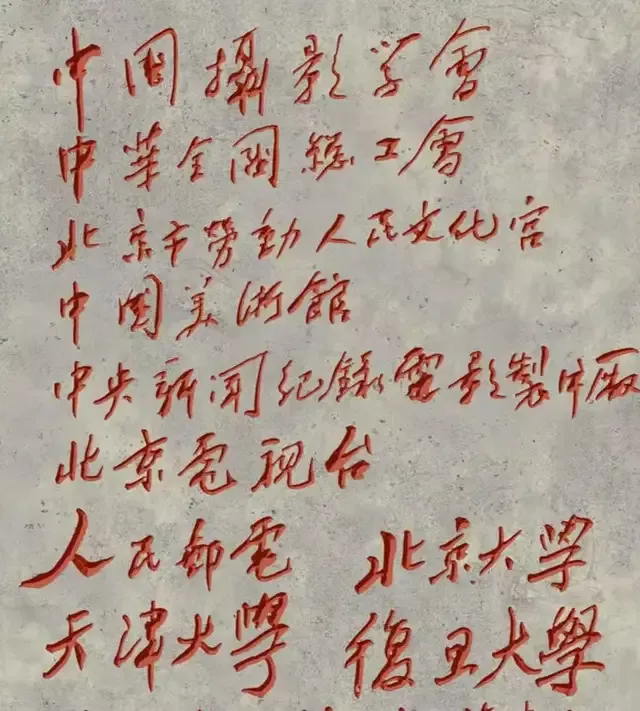 中国攝影学會
中華全國總工會
北京市勞動人民文化宮
中国美術館
中央新闻纪録電影製片厰
北京電視台
人民郵電 北京大学
天津大學 復旦大學